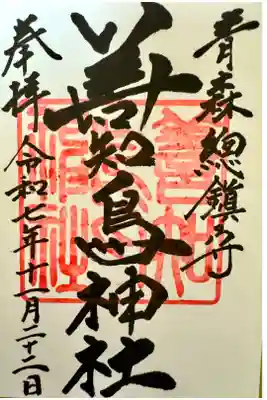 青森總鎮守
善知鳥神社
奉拝 令和七年十一月二十二日